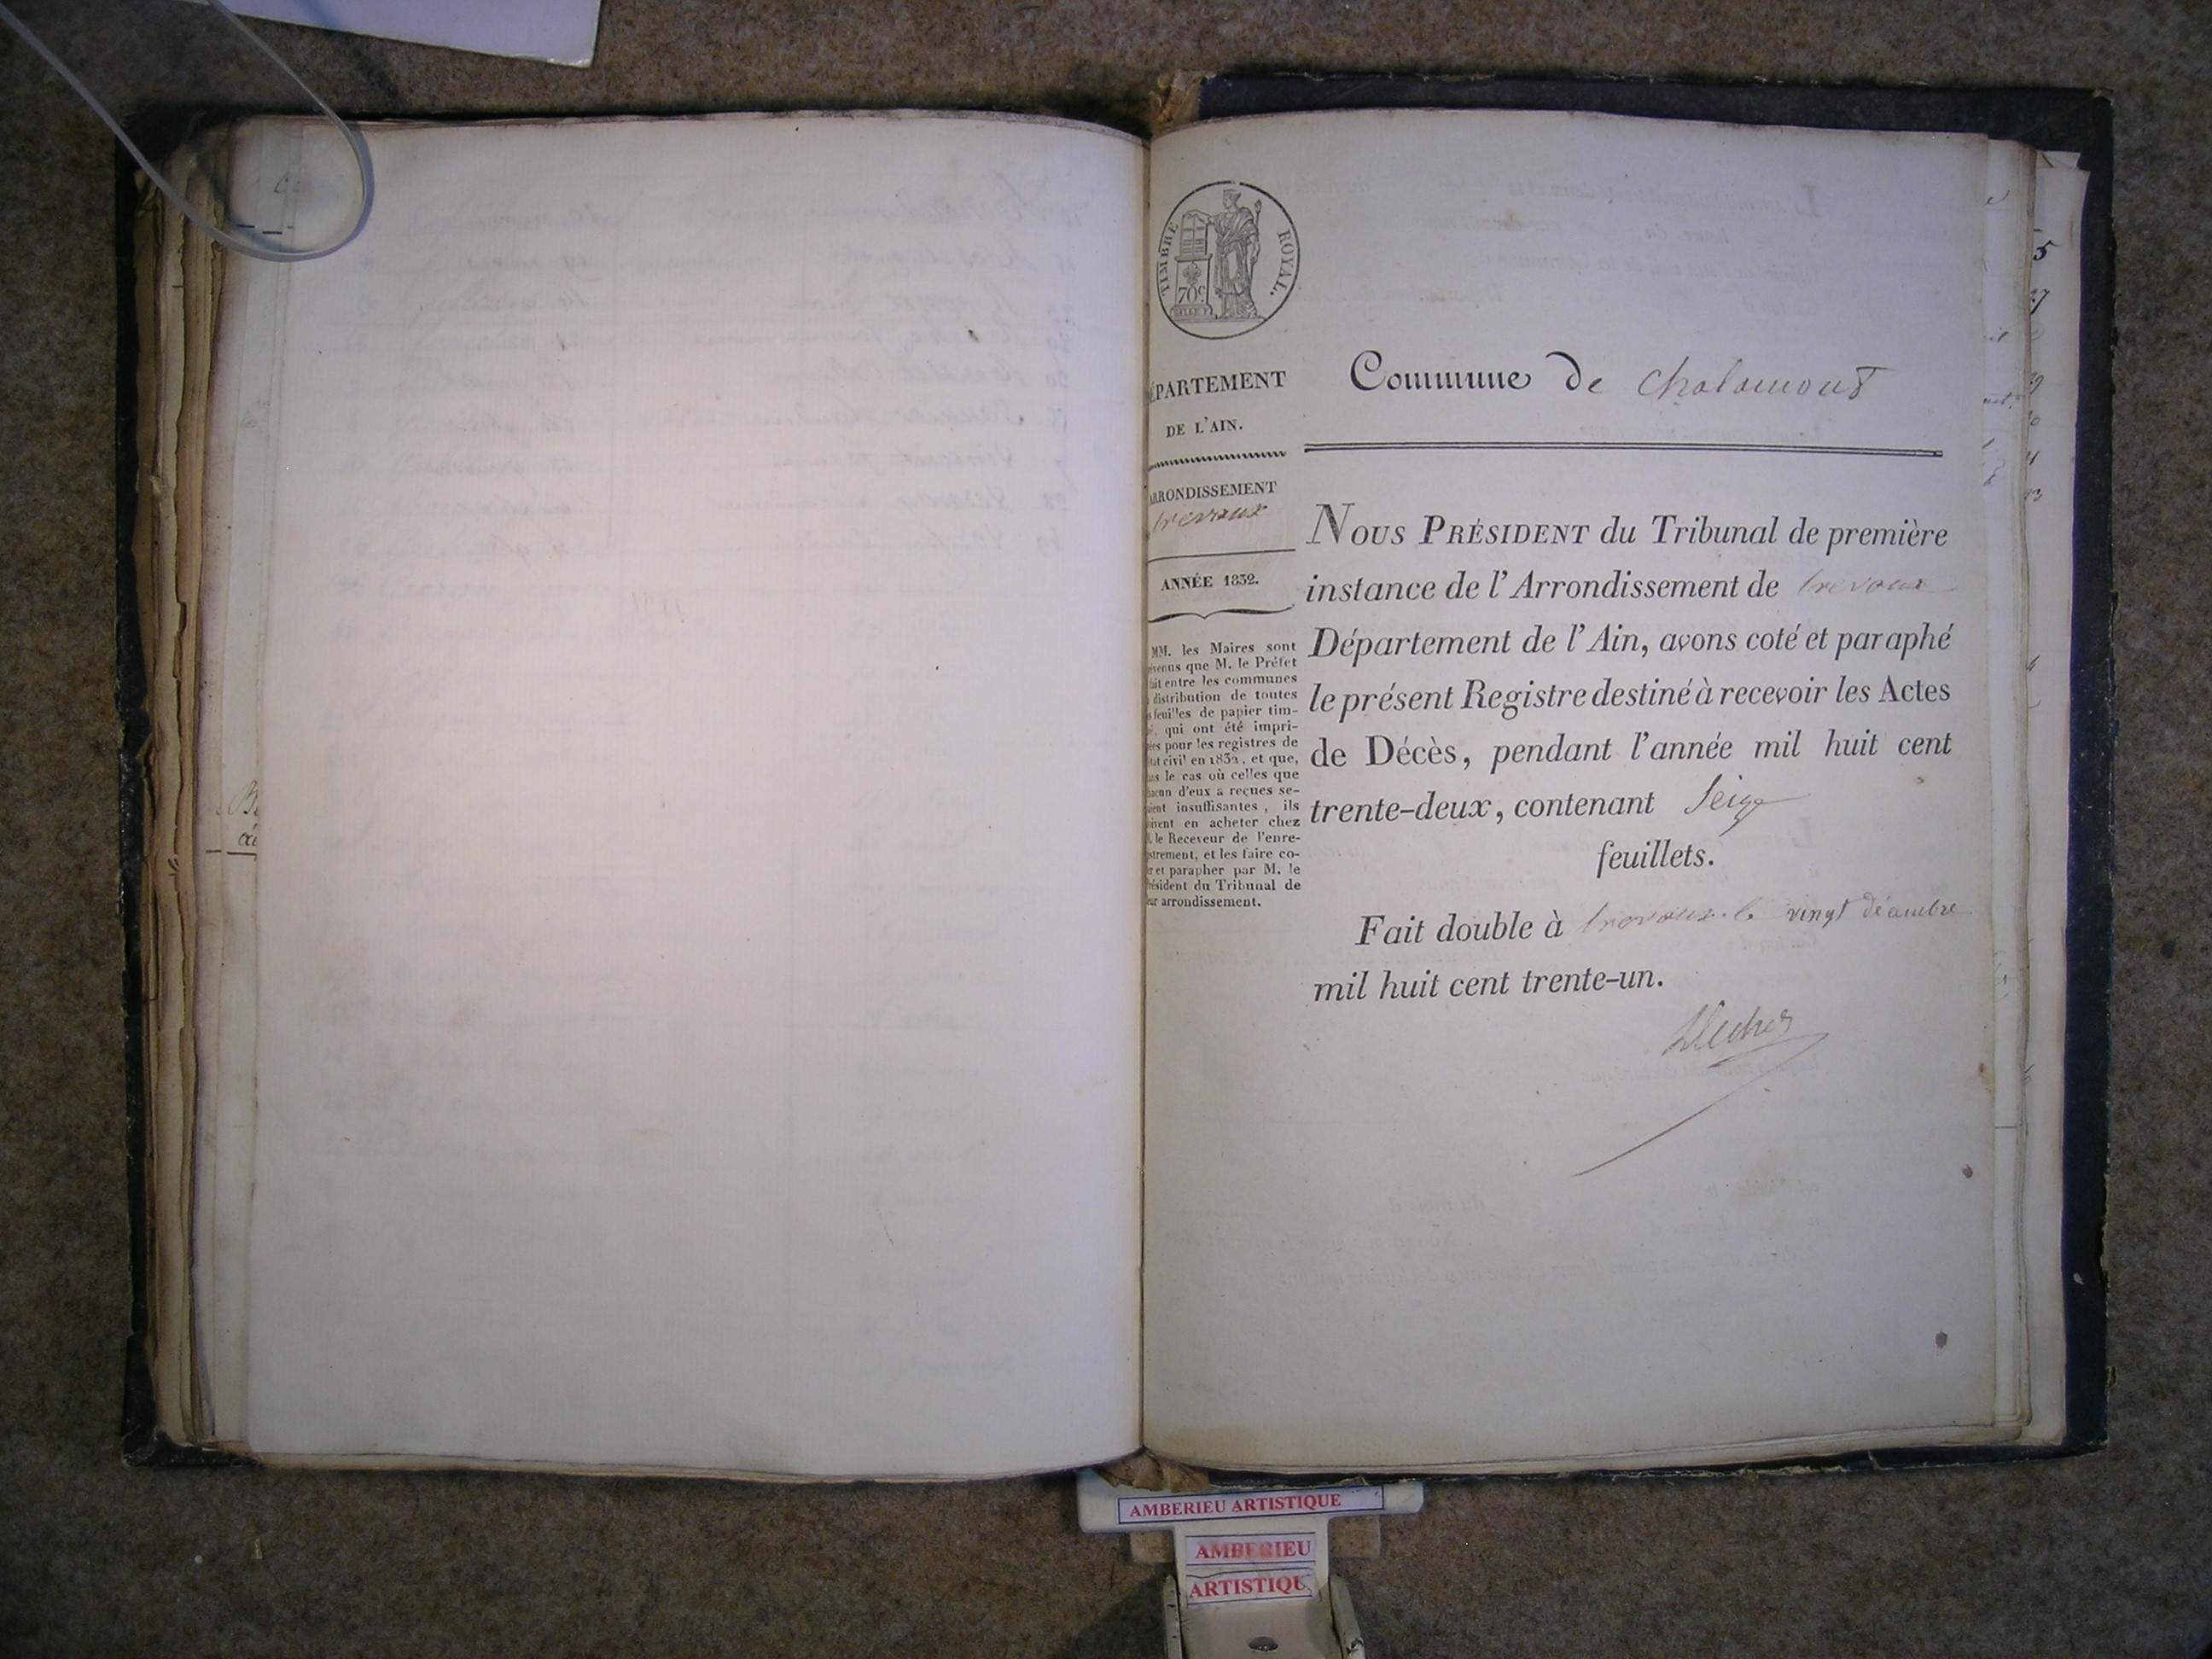 TIMBRE ROYAL.
70c
DÉPARTEMENT
DE L'AIN.
ARRONDISSEMENT
trevoux
ANNÉE 1832.
MM. les Maires sont
que M. le Préfet
fait entre les communes
distribution de toutes
feuilles de papier tim-
qui ont été impri-
pour les registres de
civil en 1832, et que,
le cas où celles que
d'eux a reçues se-
insuffisantes, ils
en acheter chez
le Receveur de l'enre-
gistrement, et les faire co-
ter et parapher par M. le
Président du Tribunal de
arrondissement.
Commune de Chalamont
NOUS PRÉSIDENT du Tribunal de première
instance de l'Arrondissement de trevoux
Département de l'Ain, avons coté et paraphé
le présent Registre destiné à recevoir les Actes
de Décès, pendant l'année mil huit cent
trente-deux, contenant Seize
feuillets.
Fait double à trevoux le vingt décembre
mil huit cent trente-un.
AMBERIEU ARTISTIQUE
AMBERIEU
ARTISTIQU